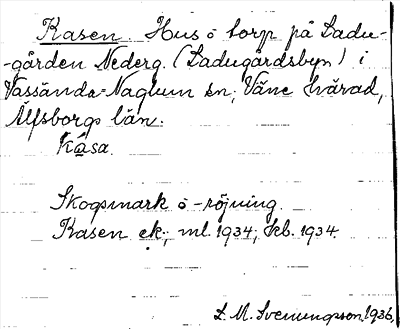 Kasen. Hus o torp på Ladu-
-gården Nederg. (Ladugårdsbyn) i
Vassända-Naglum sn; Väne härad,
Älfsborgs län.
Kåsa.
Skogsmark o -röjning.
Kasen ek; ml. 1934; kb. 1934.
L. M. Svenungson, 1936.